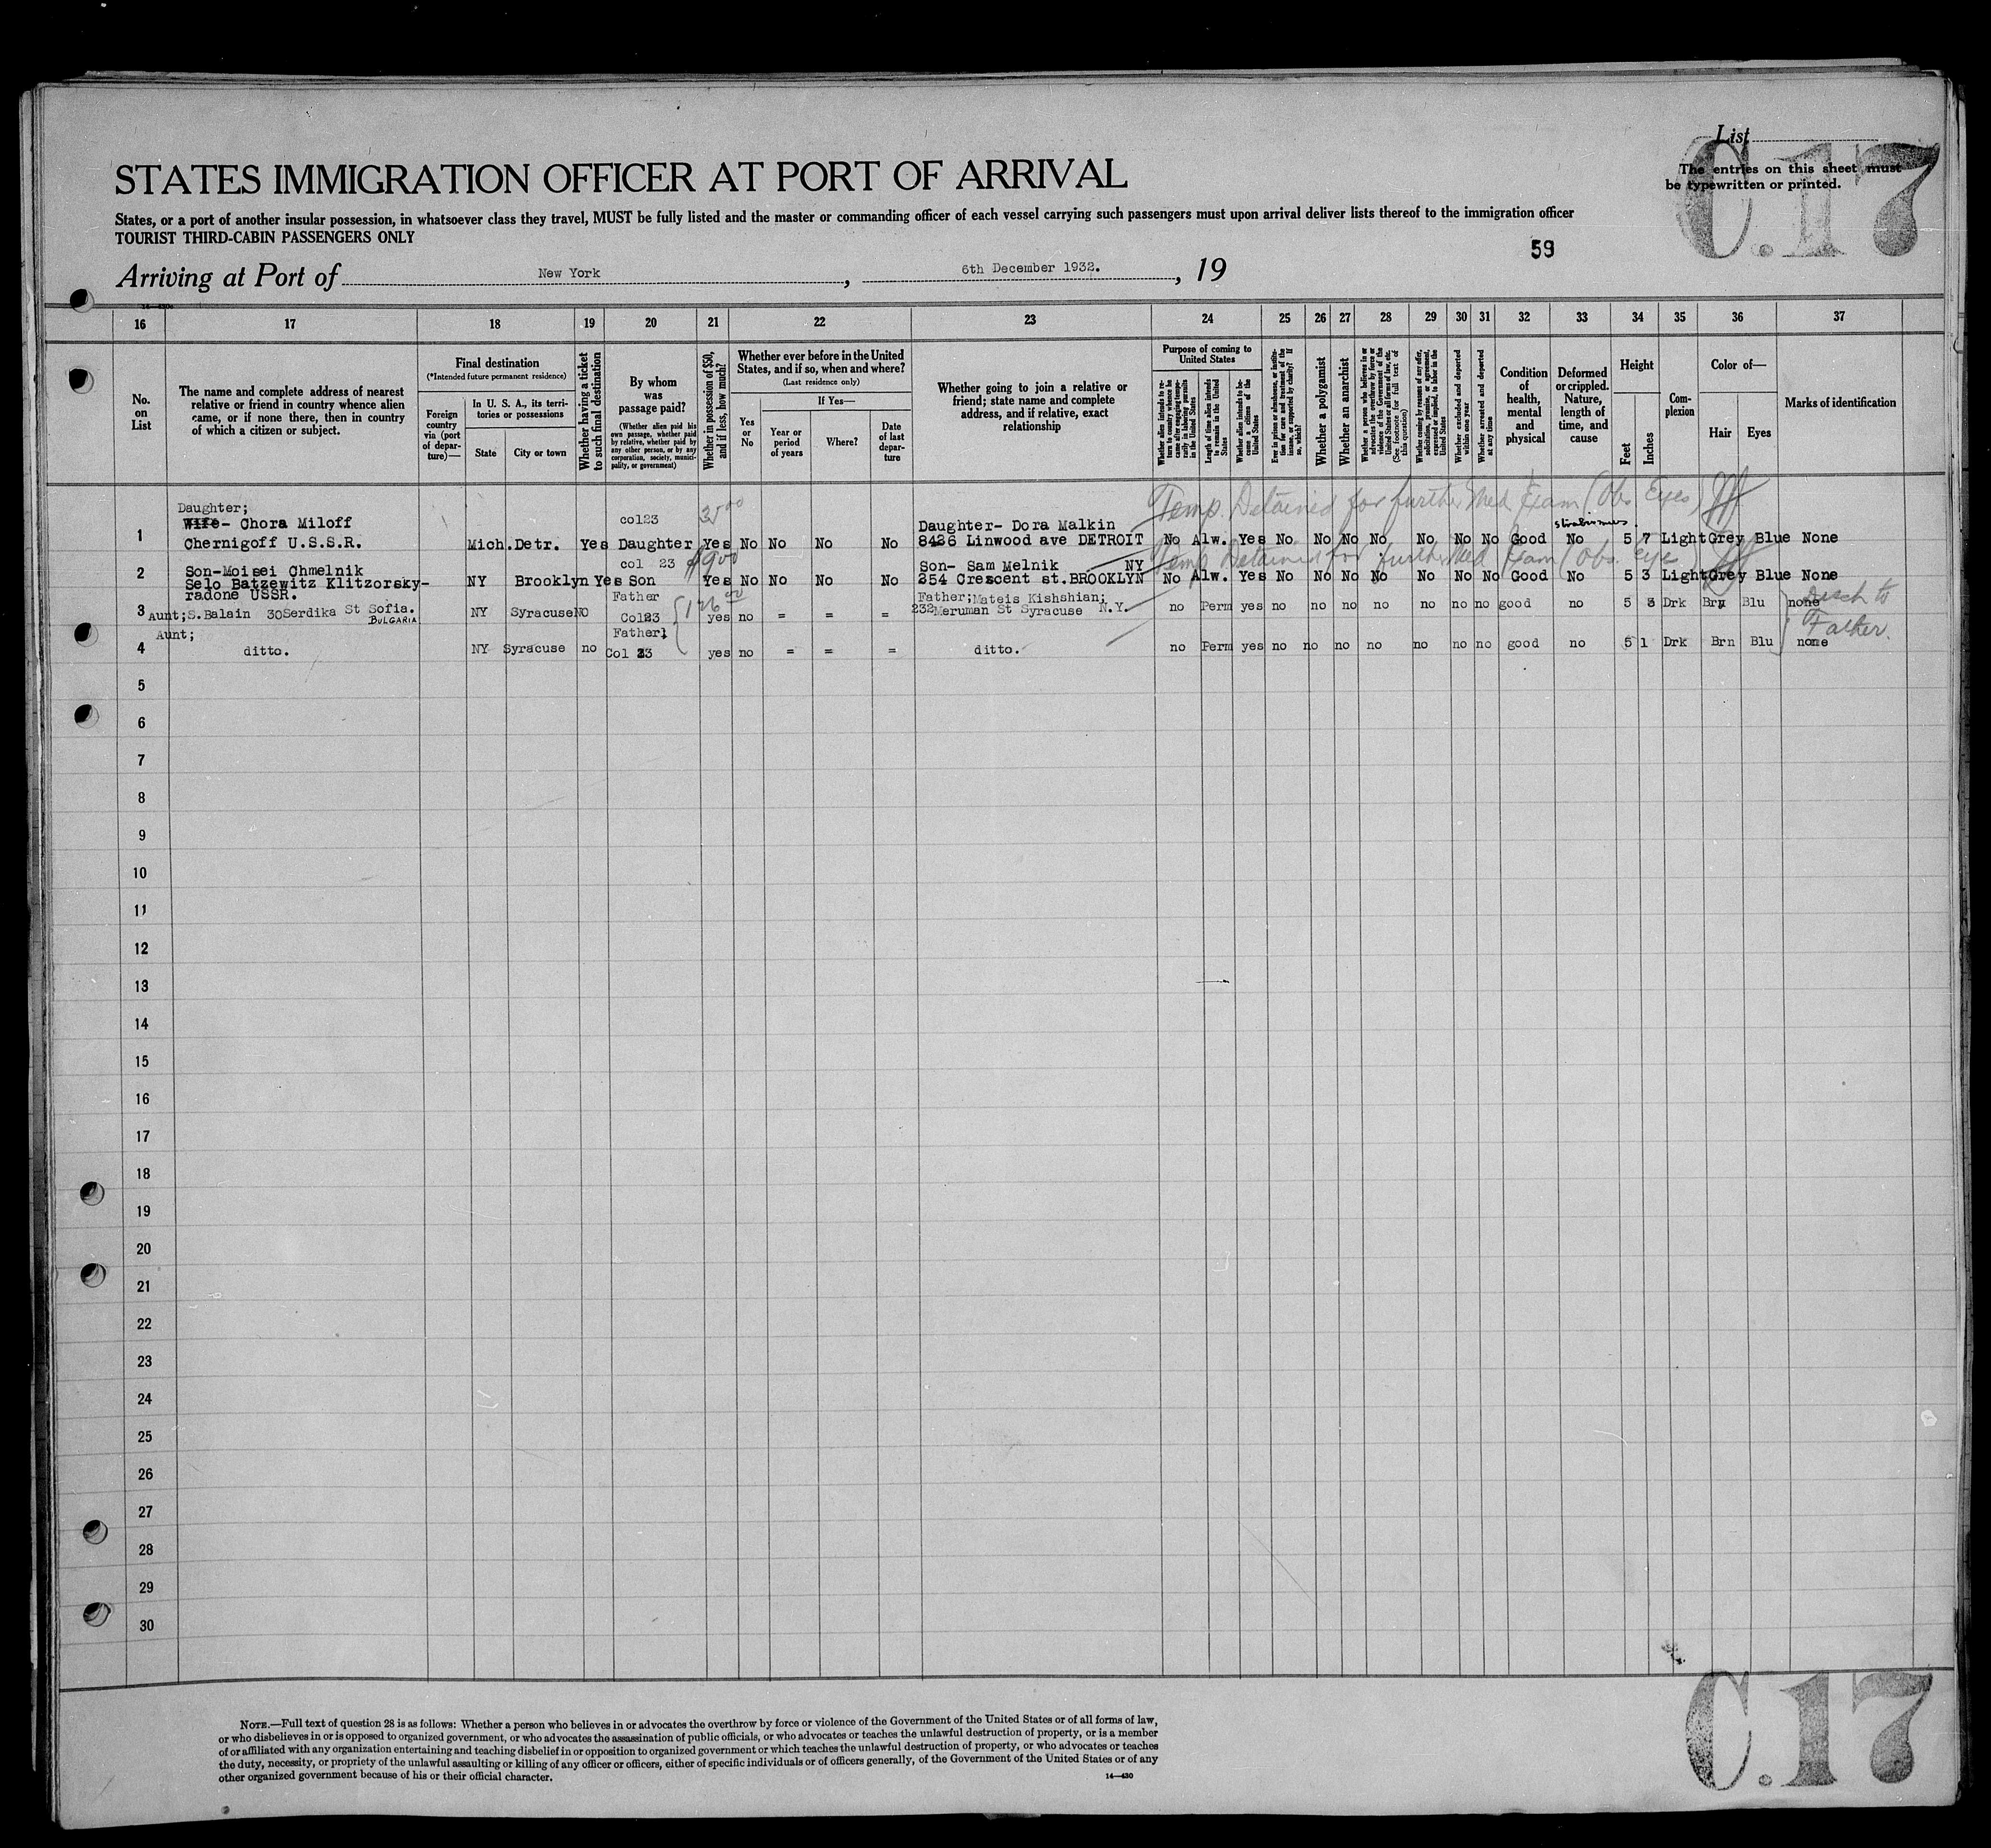 List
C.17
The entries on this sheet must
be typewritten or printed.
STATES IMMIGRATION OFFICER AT PORT OF ARRIVAL
States, or a port of another insular possession, in whatsoever class they travel, MUST be fully listed and the master or commanding officer of each vessel carrying such passengers must upon arrival deliver lists thereof to the immigration officer
TOURIST THIRD-CABIN PASSENGERS ONLY
59
Arriving at Port of New York, 6th December 1932., 19
16 17 18 19 20 21 22 23 24 25 26 27 28 29 30 31 32 33 34 35 36 37
No. on List
The name and complete address of nearest
relative or friend in country whence alien
came, or if none there, then in country
of which a citizen or subject.
Final destination
(*Intended future permanent residence)
Foreign country via (port of departure)—
In U. S. A., its territories or possessions
State
City or town
Whether having a ticket to such final destination
By whom was passage paid?
(Whether alien paid his own passage, whether paid by relative, whether paid by any other person, or by any corporation, society, municipality, or government)
Whether in possession of $50, and if less, how much?
Whether ever before in the United States, and if so, when and where?
(Last residence only)
If Yes—
Yes or No
Year or period of years
Where?
Date of last departure
Whether going to join a relative or
friend; state name and complete
address, and if relative, exact
relationship
Purpose of coming to United States
Whether alien intends to return to country whence he came after engaging temporarily in laboring pursuits in the United States
Length of time alien intends to remain in the United States
Whether alien intends to become a citizen of the United States
Ever in prison or almshouse, or institution for care and treatment of the insane, or supported by charity? If so, which?
Whether a polygamist
Whether an anarchist
Whether a person who believes in or advocates the overthrow by force or violence of the Government of the United States or all forms of law, etc. (See footnote for full text of this question)
Whether coming by reason of any offer, solicitation, promise, or agreement, expressed or implied, to labor in the United States
Whether excluded and deported within one year
Whether arrested and deported at any time
Condition of health, mental and physical
Deformed or crippled. Nature, length of time, and cause
Height
Feet
Inches
Complexion
Color of—
Hair
Eyes
Marks of identification
Temp. Detained for further Med Exam (Obs. Eyes)
Daughter;
Wife- Chora Miloff col23 3500 Daughter- Dora Malkin strabismus
1 Chernigoff U.S.S.R. Mich. Detr. Yes Daughter Yes No No No No 8426 Linwood ave DETROIT No Alw. Yes No No No No No No No Good No 5 7 Light Grey Blue None
Temp Detained for further Med Exam (Obs. eye)
Son-Moisei Chmelnik col 23 $900 Son- Sam Melnik NY
2 Selo Batzewitz Klitzorsky- NY Brooklyn Yes Son Yes No No No No 254 Crescent st. BROOKLYN No Alw. Yes No No No No No No No Good No 5 3 Light Grey Blue None
radone USSR. Father Father; Mateis Kishshian;
3 Aunt;S.Balain 30Serdika St Sofia. NY Syracuse NO Col23 126 00 yes no = = = 232 Meruman St Syracuse N.Y. no Perm yes no no no no no no no good no 5 3 Drk Brn Blu none
BULGARIA
Disch to
Father.
Aunt; Father
4 ditto. NY Syracuse no Col 23 yes no = = = ditto. no Perm yes no no no no no no no good no 5 1 Drk Brn Blu none
5
6
7
8
9
10
11
12
13
14
15
16
17
18
19
20
21
22
23
24
25
26
27
28
29
30
NOTE.—Full text of question 28 is as follows: Whether a person who believes in or advocates the overthrow by force or violence of the Government of the United States or of all forms of law,
or who disbelieves in or is opposed to organized government, or who advocates the assassination of public officials, or who advocates or teaches the unlawful destruction of property, or is a member
of or affiliated with any organization entertaining and teaching disbelief in or opposition to organized government or which teaches the unlawful destruction of property, or who advocates or teaches
the duty, necessity, or propriety of the unlawful assaulting or killing of any officer or officers, either of specific individuals or of officers generally, of the Government of the United States or of any
other organized government because of his or their official character.
14—430
C.17